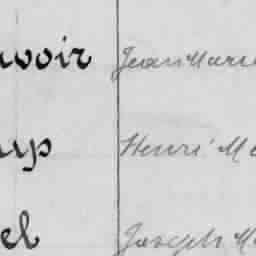 avoir Jean Marie
up Henri Ma
el Joseph M